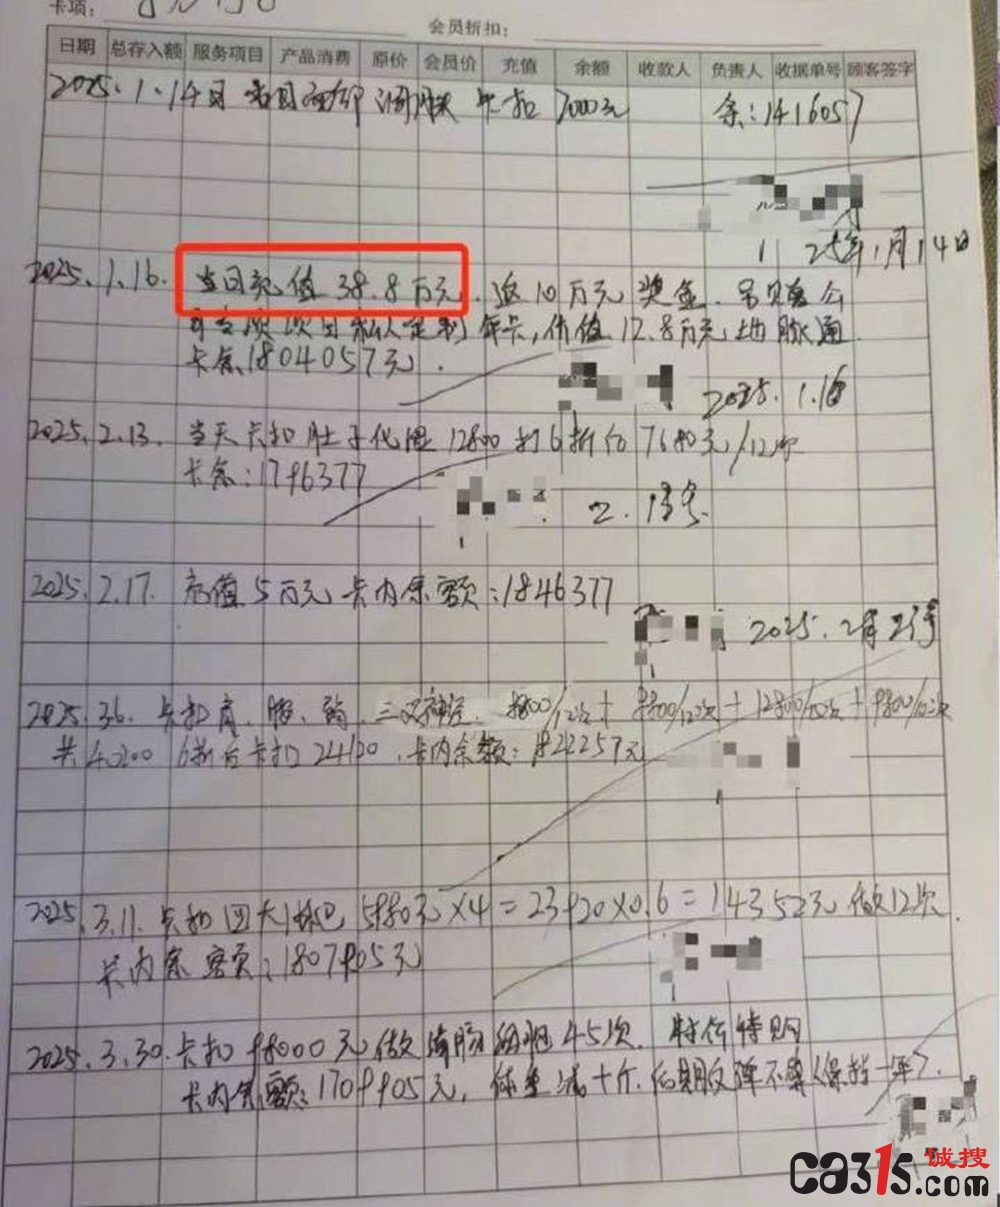 卡项:
会员折扣:
日期 总存入额 服务项目 产品消费 原价 会员价 充值 余额 收款人 负责人 收据单号 顾客签字
2025.1.14日 当日 调 卡扣 7000元 余:1416057
25年1月14日
2025.1.16. 当日充值 38.8万元. 返10万元奖金.
私人定制年卡,价值12.8万元 地脉通
卡余.1804057元.
2025.1.16
2025.2.13. 当天卡扣肚子化湿 12800 打6折后 7680元/12次
卡余:1796377
2.13号
2025.2.17. 充值5万元 卡内余额:1846377
2025.2月
2025.3.6. 卡扣肩、 三叉神经. /12次+ 8800/12次+12800/10次+9800/10次
共40200 6折后卡扣24120.卡内余额:1822257元
2025.3.11.卡扣四大 5980元×4=23920×0.6=14352元 做12次.
卡内余额:1807905元
2025.3.30.卡扣98000元做 45次. 特价特购
卡内余额:1709905元, 体重减十斤.后期反弹不 (保持一年).
诚搜
ca315.com